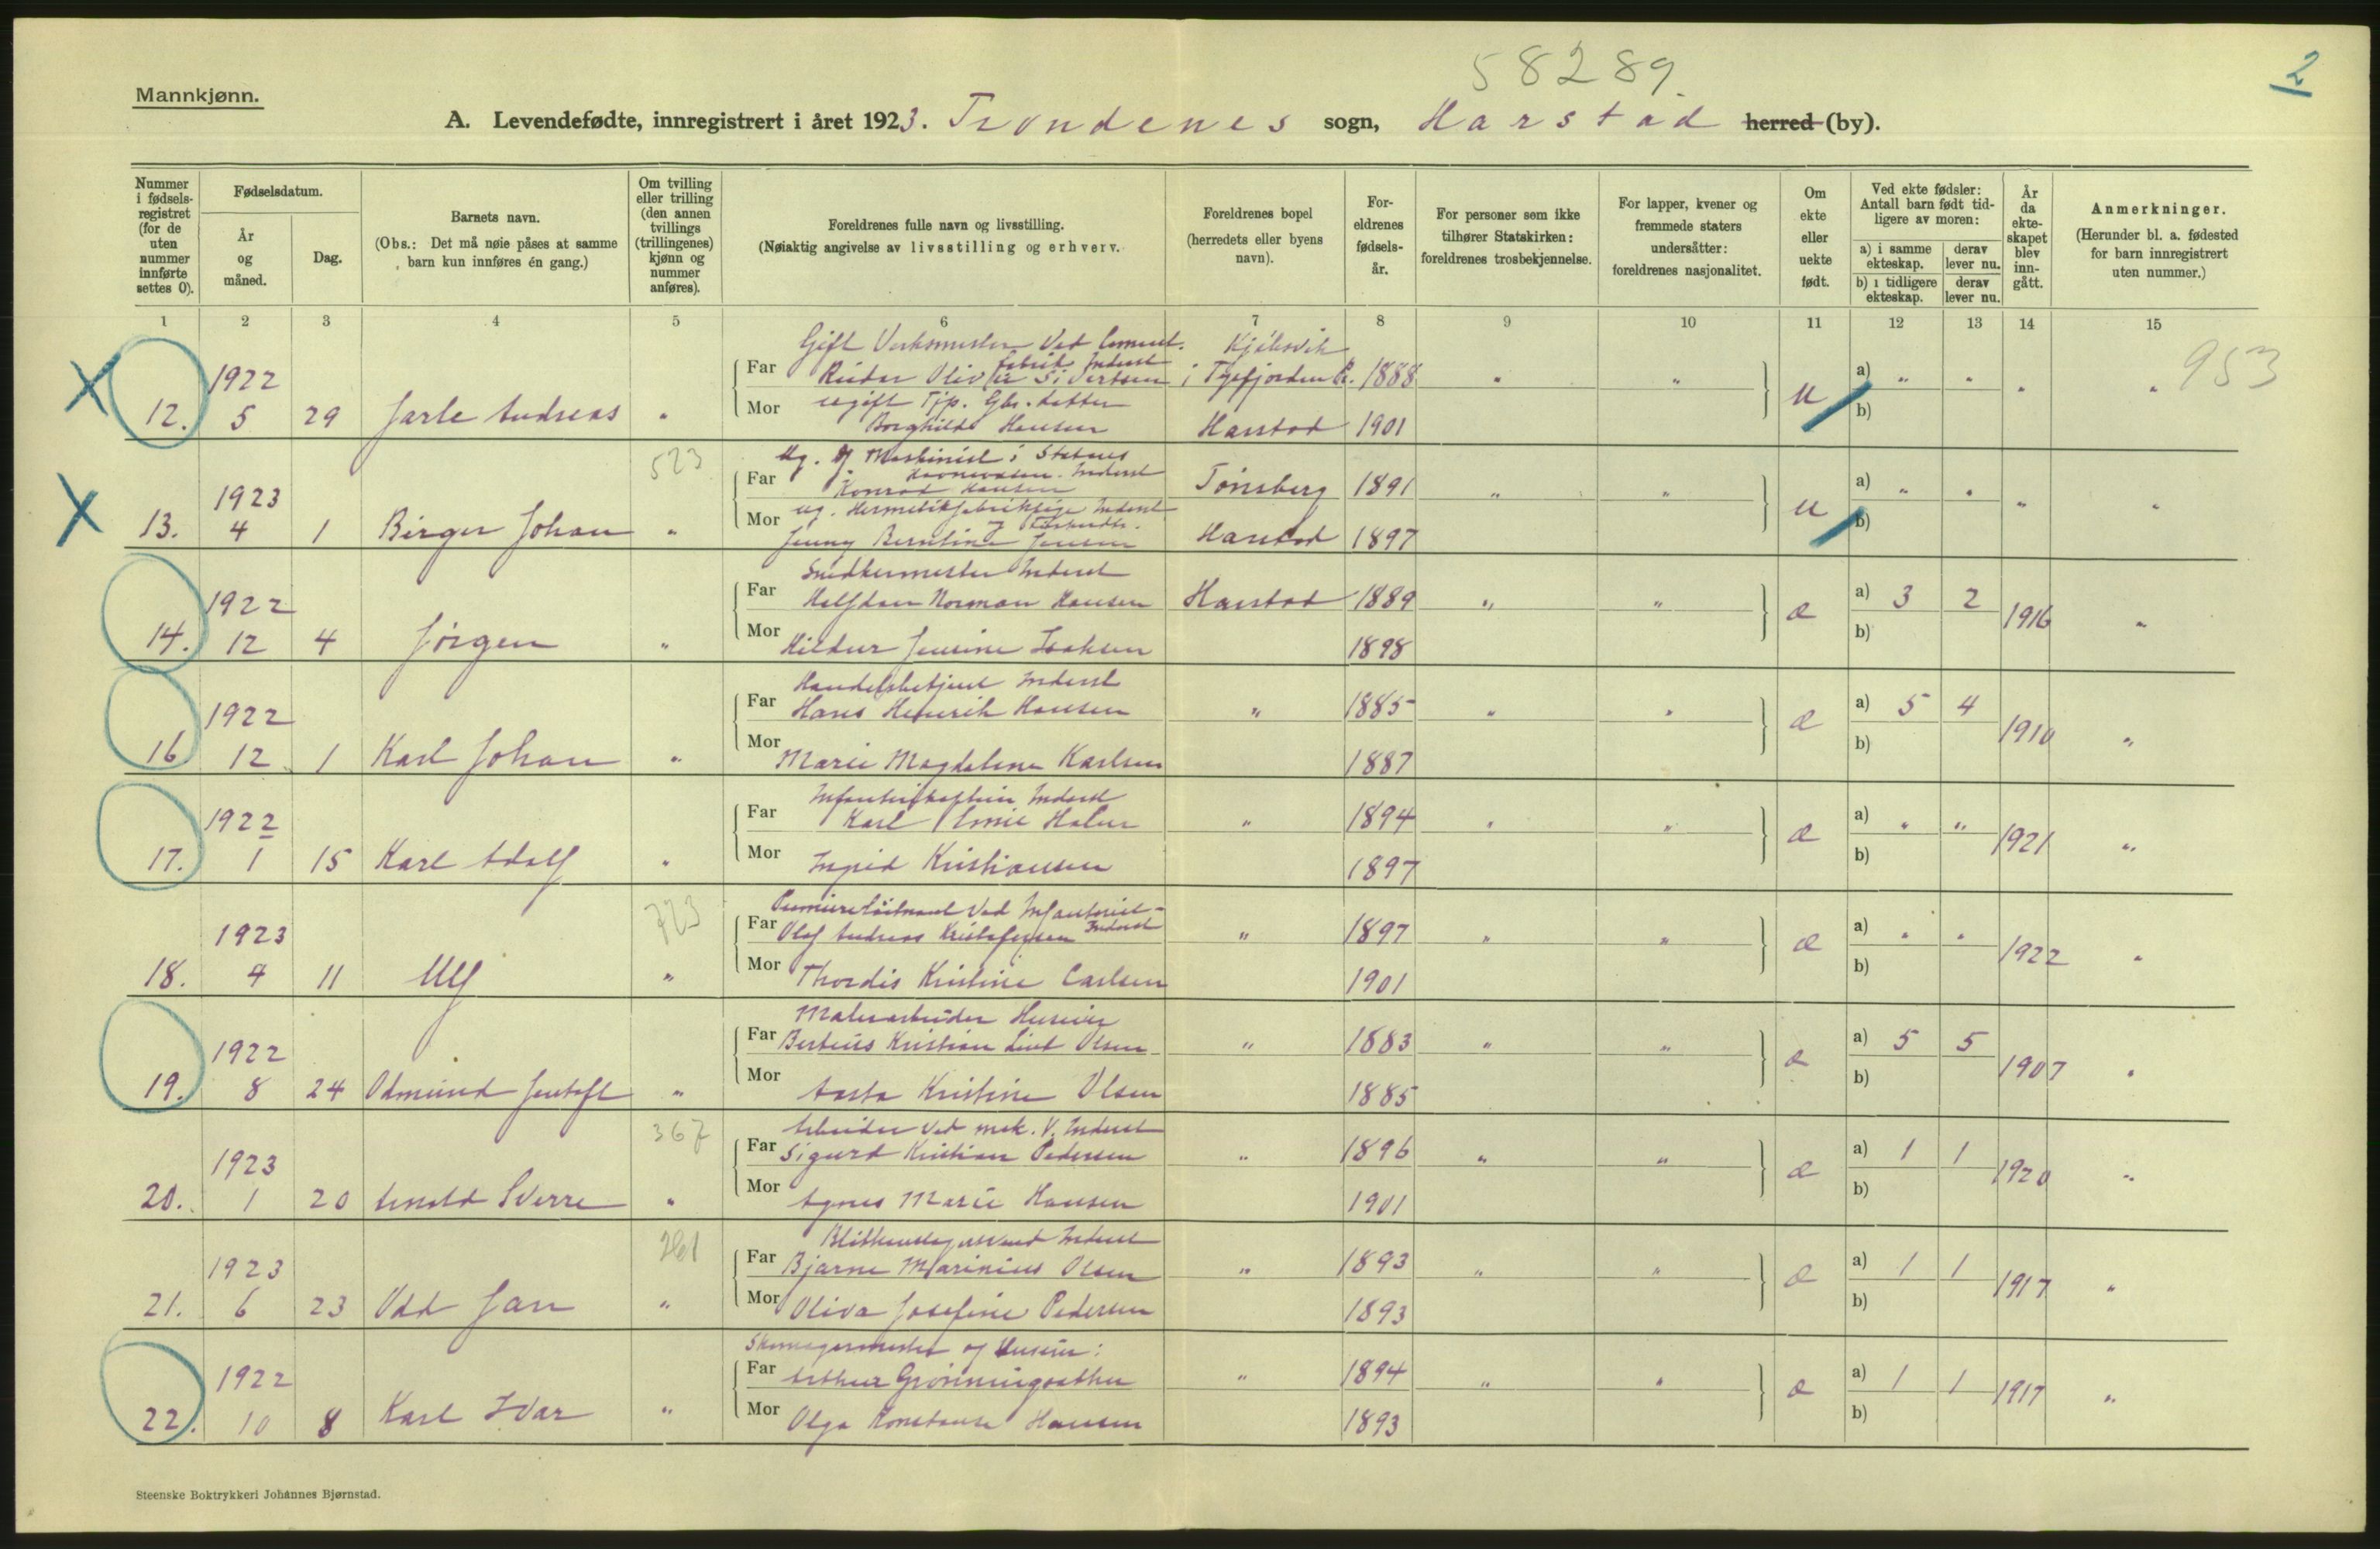 58289.
2
Mannkjønn.
A. Levendefødte, innregistrert i året 1923. Trondenes sogn, Harstad herred (by).
Nummer i fødselsregistret (for de uten nummer innførte settes 0).
Fødselsdatum.
År og måned.
Dag.
Barnets navn.
(Obs.: Det må nøie påses at samme barn kun innføres én gang.)
Om tvilling eller trilling (den annen tvillings (trillingenes) kjønn og nummer anføres).
Foreldrenes fulle navn og livsstilling.
(Nøiaktig angivelse av livsstilling og erhverv.
Foreldrenes bopel (herredets eller byens navn).
Foreldrenes fødselsår.
For personer som ikke tilhører Statskirken: foreldrenes trosbekjennelse.
For lapper, kvener og fremmede staters undersåtter: foreldrenes nasjonalitet.
Om ekte eller uekte født.
Ved ekte fødsler: Antall barn født tidligere av moren:
a) i samme ekteskap. derav lever nu.
b) i tidligere ekteskap. derav lever nu.
År da ekteskapet blev inngått.
Anmerkninger.
(Herunder bl. a. fødested for barn innregistrert uten nummer.)
1 2 3 4 5 6 7 8 9 10 11 12 13 14 15
Gift Verksmester Ved Cement. Kjøbsvik 953
1922 Far fabrik Inderst
Reidar Oliver Sivertsen i Tysfjorden P. 1888 " " a) " " " "
12. 5 29 Jarle Andreas " Mor ugift Tjp. Gbr. datter u b)
Borghild Hansen Harstad 1901
523 Ug. Maskinist i Statens
1923 Far Havnevæsen. Inderst
Konrad Hansen Tønsberg 1891 " " a) " " " "
13. 4 1 Birger Johan " Mor ug. Hermetikfabrikspige Inderst u b)
Jenny Berntine Jensen Harstad 1897
Snedkermester Inderst
1922 Far Halfdan Norman Hansen Harstad 1889 " " æ a) 3 2 1916 "
14. 12 4 Jørgen " Mor Hildur Jensine Isaksen 1898 b)
Handelsbetjent Inderst
1922 Far Hans Henrik Hansen " 1885 " " æ a) 5 4 1910 "
16 12 1 Karl Johan " Mor Marie Magdalene Karlsen 1887 b)
Infanterikaptein Inderst
1922 Far Karl " 1894 " " æ a) " " 1921 "
17. 1 15 Karl Adolf " Mor Ingrid Kristiansen 1897 b)
723 Premierløitnant Ved Infanteriet
1923 Far Olaf Andreas Kristofersen Inderst " 1897 " " æ a) " " 1922 "
18. 4 11 Ulf " Mor Thordis Kristine Carlsen 1901 b)
Malerarbeider Huseier
1922 Far Berteus Kristian Lind Olsen " 1883 " " æ a) 5 5 1907 "
19. 8 24 Odmund Jentoft " Mor Aasta Kristine Olsen 1885 b)
367 Arbeider Ved mek. V. Inderst
1923 Far Sigurd Kristian Pedersen " 1896 " " æ a) 1 1 1920 "
20. 1 20 Arnold Sverre " Mor Agnes Marie Hansen 1901 b)
261 Blikkenslagersvend Inderst
1923 Far Bjarne Marinius Olsen " 1893 " " æ a) 1 1 1917 "
21. 6 23 Odd Jan " Mor Oliva Josefine Pedersen 1893 b)
Skomagermester og Huseier:
1922 Far Arthur Grønningsæther " 1894 " " æ a) 1 1 1917 "
22. 10 8 Karl Ivar " Mor Olga Konstanse Hansen 1893 b)
Steenske Boktrykkeri Johannes Bjørnstad.